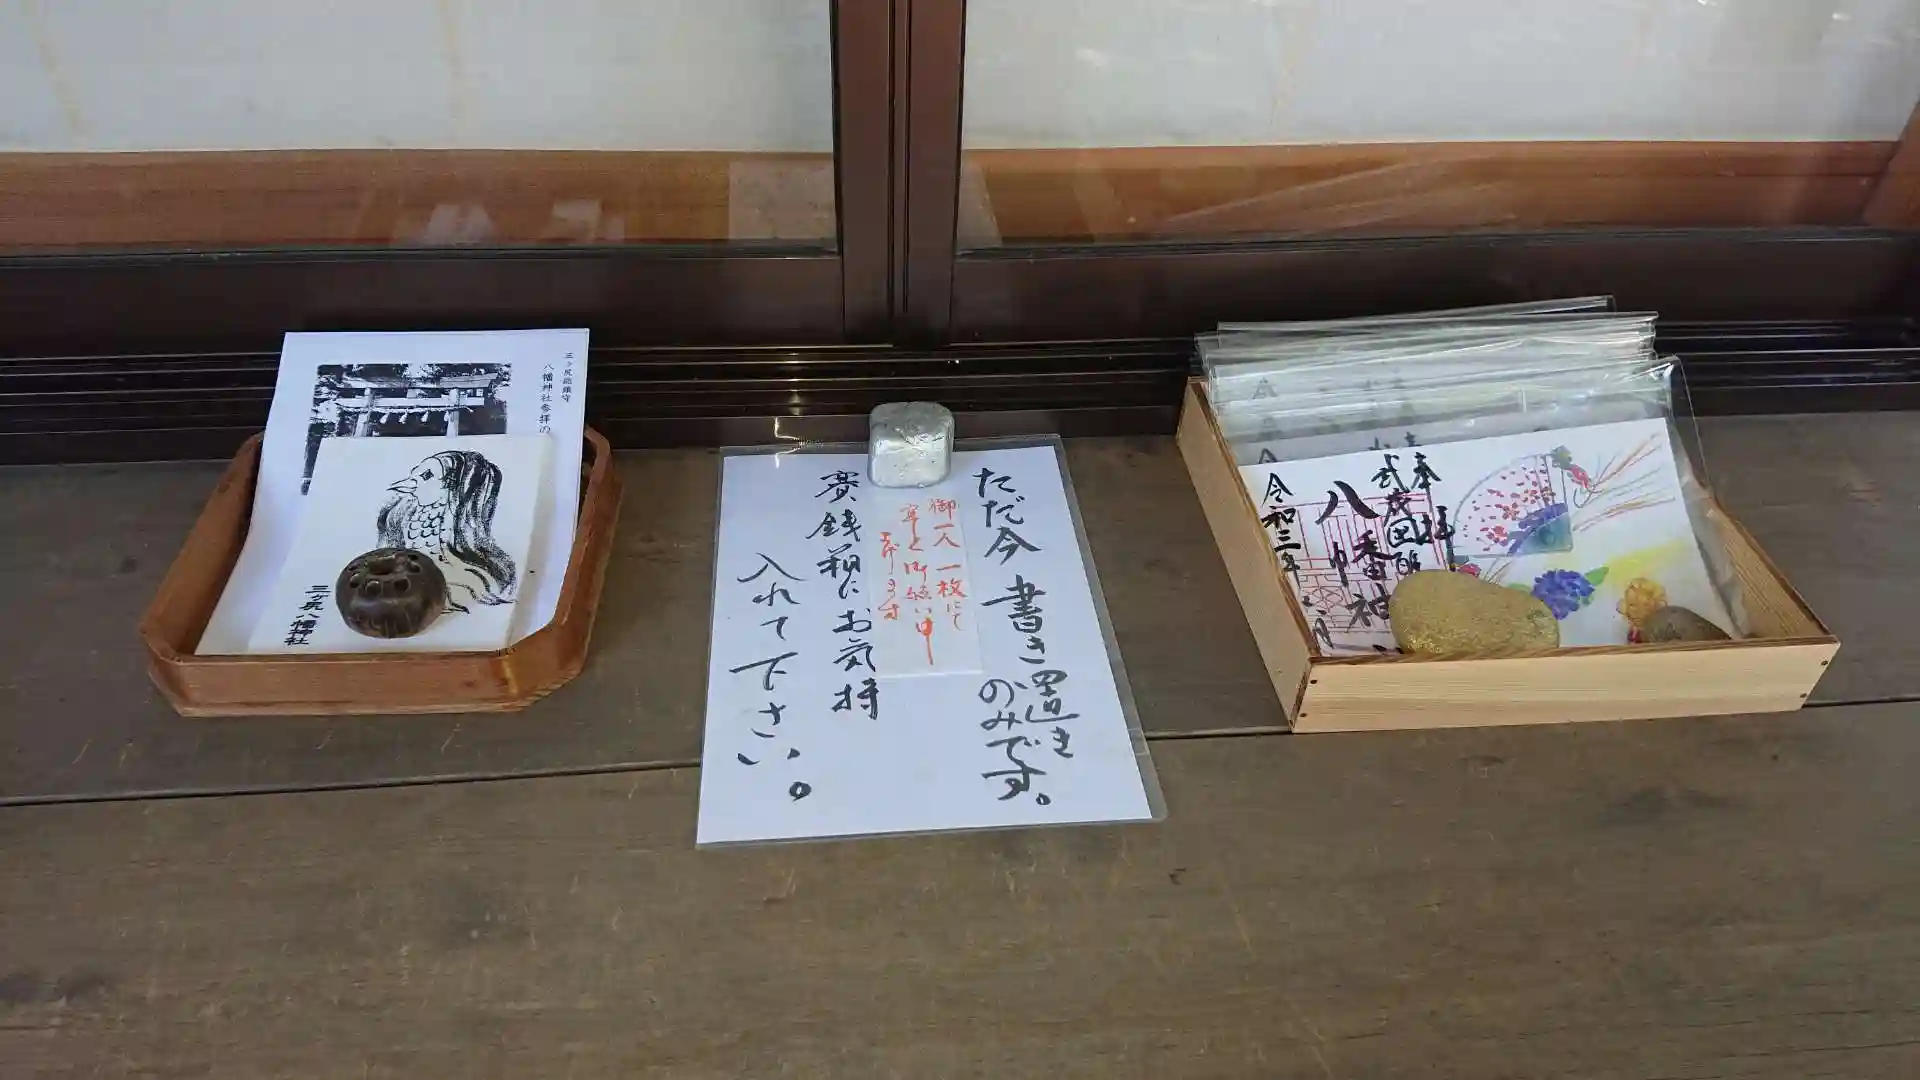 三ヶ尻総鎮守
八幡神社参拝の
三ヶ尻八幡神社
ただ今
書き置き
のみです。
御一人一枚にて
賽銭箱にお気持
入れて下さい。
奉拝
八幡神
令和三年